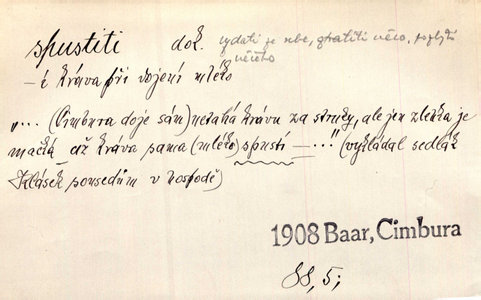 spustiti dok. vydati ze sebe, ztratiti něco, pozbýti
něčeho
– í kráva při dojení mléko
„... (Cimbura doje sám) netahá krávu za struky, ale jen zlehka je
mačká až kráva sama (mléko) spustí – ...“ (vykládal sedlák
Kalášek sousedům v hospodě)
1908 Baar, Cimbura
88, 5;